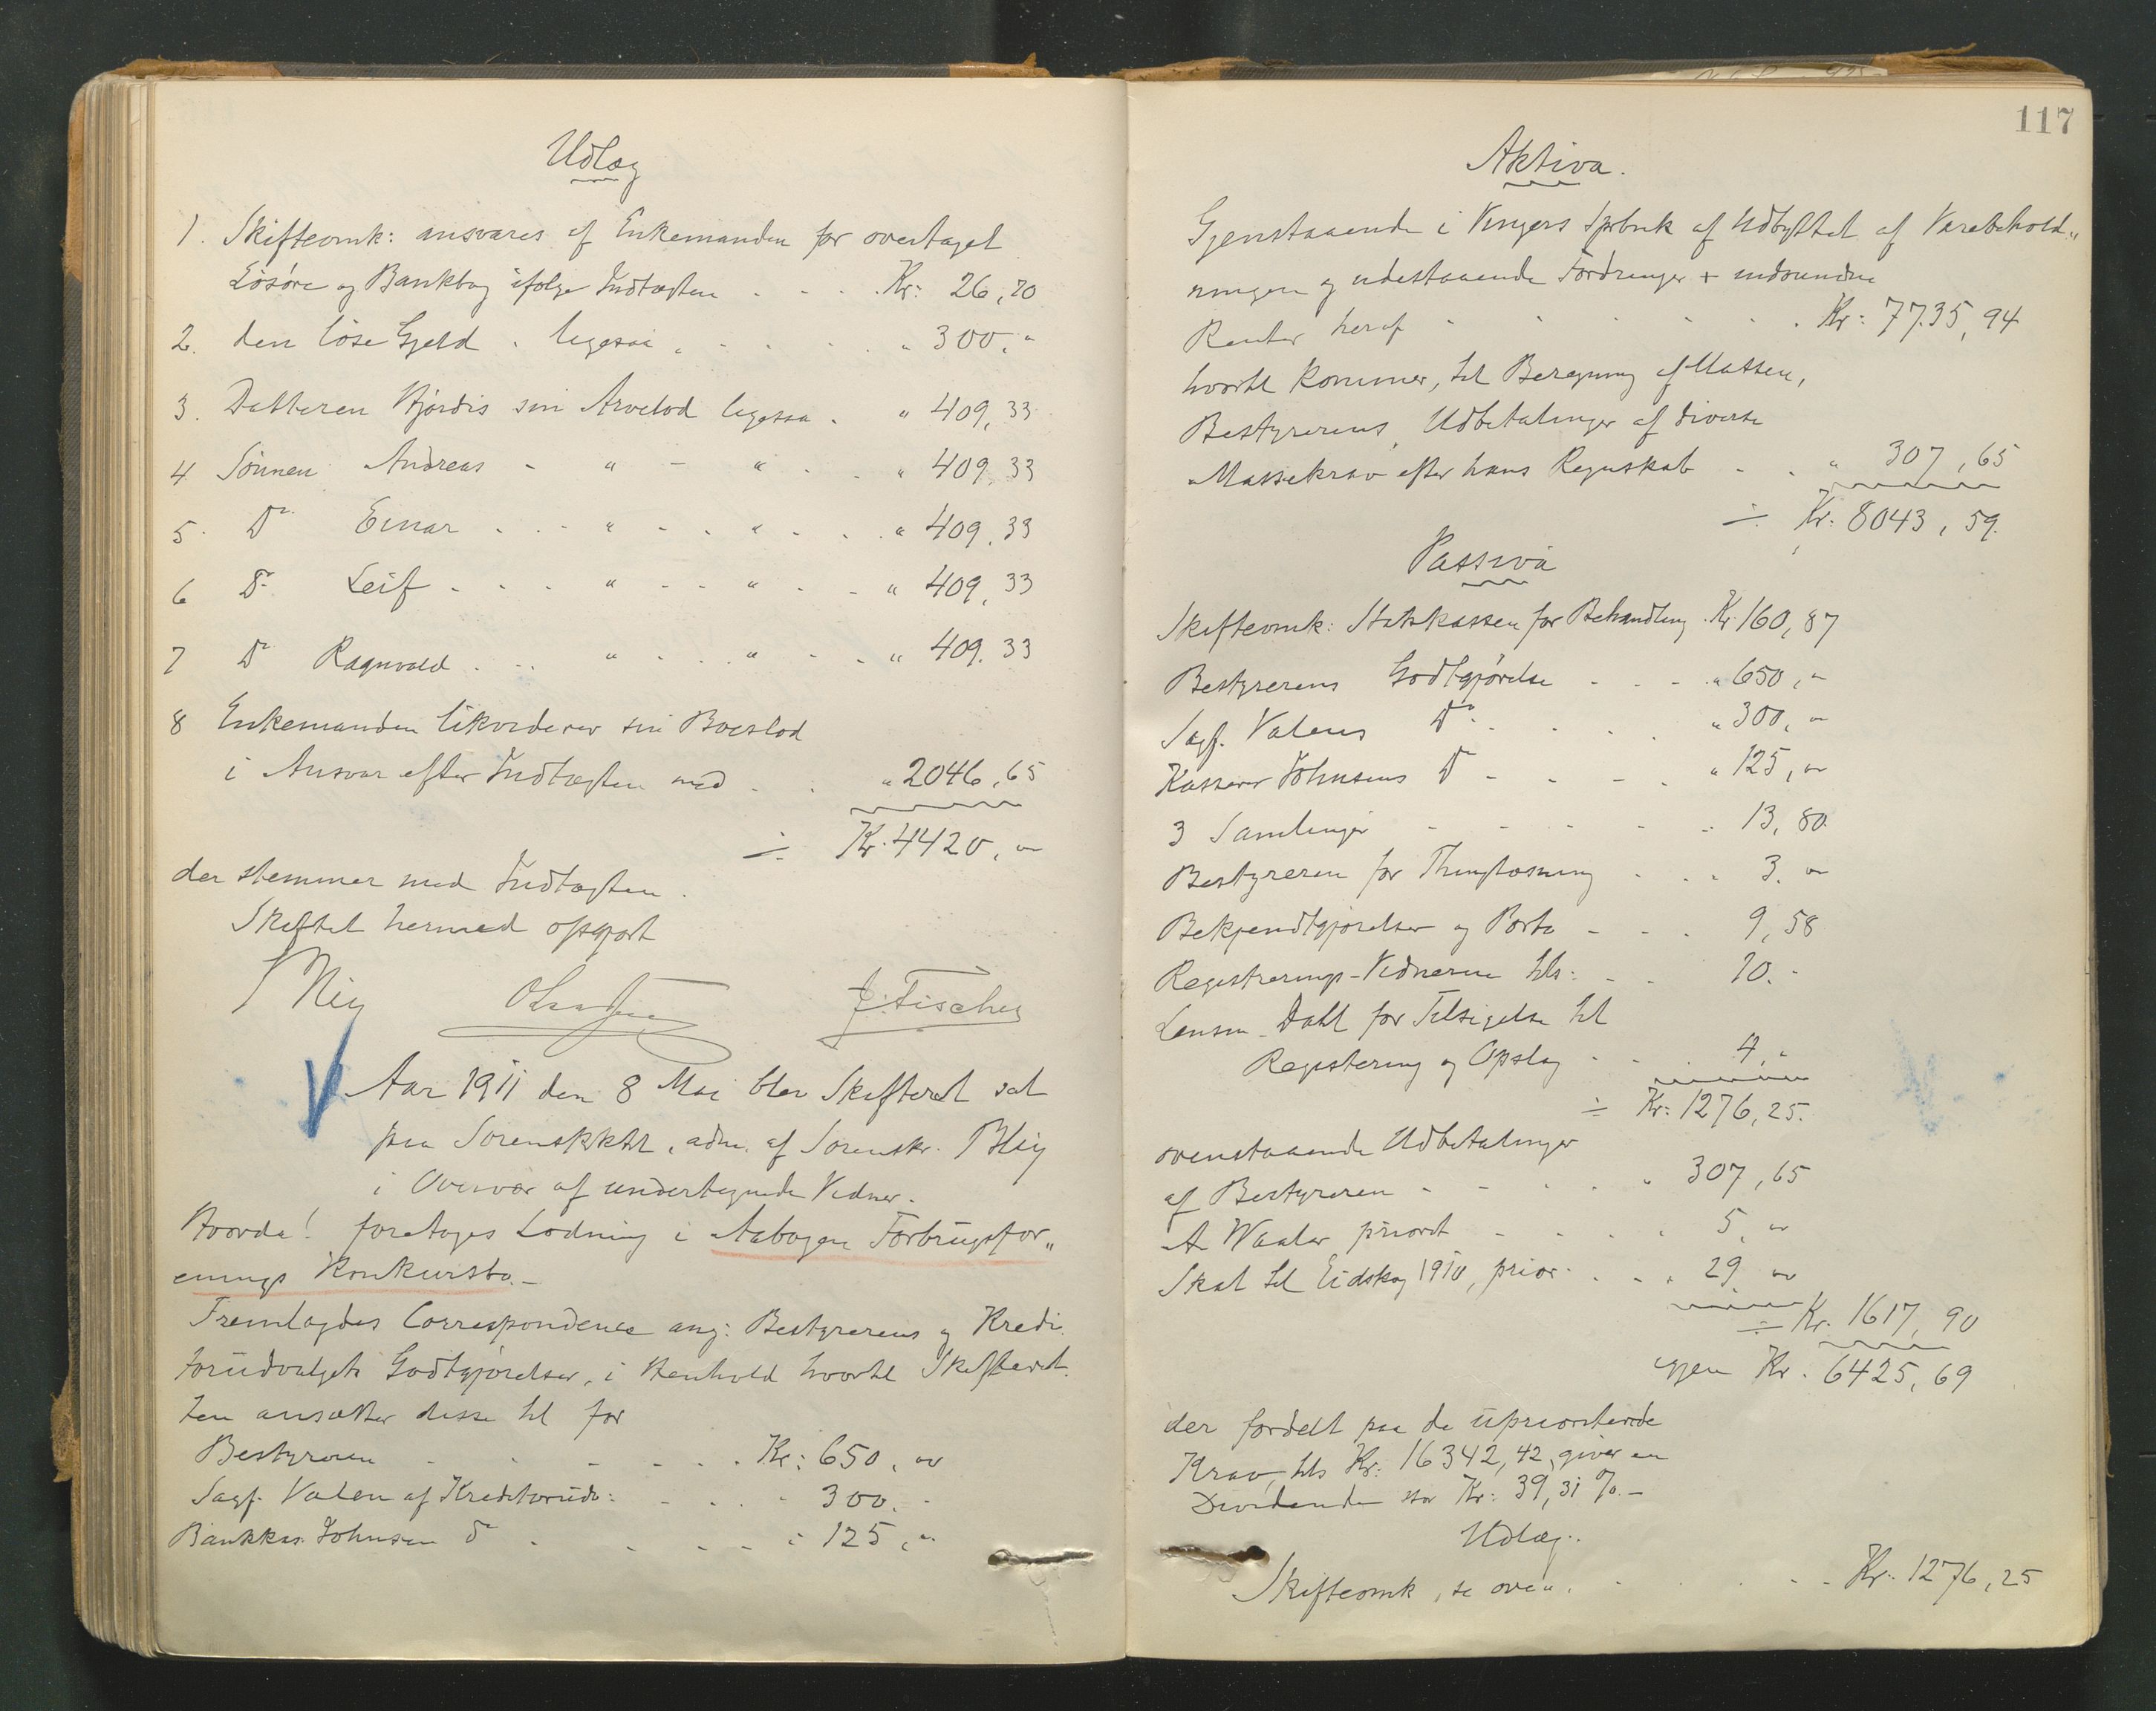 Udlæg
1. Skifteomk: ansvares af Enkemanden for overtaget
Løsøre og Bankbog ifølge Indtægten . . . Kr: 26,70
2. den løse Gjeld . ligesaa . . . . . " 300,"
3. Datteren Hjørdis sin Arvelod ligesaa . " 409,33
4 Sønnen Andreas - " - " . . " 409,33
5. Do Einar . . . " - . " . . . " 409,33
6 Do Leif . . . " - - " . . " 409,33
7 Do Ragnvald . . . " . . " . . " 409,33
8 Enkemanden likviderer sin Boeslod
i Ansvar efter Indtægten med . . " 2046,65
÷ Kr. 4420,"
der stemmer med Indtægten.
Skiftet hermed opgjort
J. Fischer
Aar 1911 den 8 Mai blev Skifteret sat
paa Sorenskktr. adm. af Sorenskr.
i Overvær af undertegnede Vidner.
Hvorda! foretoges Lodning i Aabogen Forbrugsfor„
enings Konkursbo.-
Fremlagdes Correspondence ang: Bestyrerens og Kredi
torudvalgets Godtgjørelser, i Henhold hvortil Skifteret
ten ansætter disse til for
Bestyreren . . . . . . Kr: 650,"
Sagf. Valen af Kreditorudv: . . . 300.-
Bankkas. Johnsen Do . . . . " 125,"
117
Aktiva.
Gjenstaaende i Vingers Sprbnk af Udbyttet af Varebehold„
ningen og udestaaende Fordringer + indvundne
Renter heraf . . . . . . Kr: 7735,94
hvortil kommer, til Beregning af Massen,
Bestyrerens Udbetalinger af diverse
Massekrav efter hans Regnskab . . " 307,65
÷ Kr: 8043,59.
Passiva
Skifteomk: Statskassen for Behandling. Kr 160,87
Bestyrerens Godtgjørelse . . . " 650,"
Sagf. Valens Do. . . . . " 300,"
Kasserer Johnsens Do - . . . " 125,"
3 Samlinger . . . . . 13,80.
Bestyreren for Thinglæsning . . . 3."
Bekjendtgjørelser og Porto - . . 9,58
Registrerings-Vidnerne tils: . . 10.-
Lensm. Dahl for Tilsigelse til
Registering og Opslag . . . 4,"
÷ Kr: 1276,25.
ovenstaaende Udbetalinger
af Bestyreren . . . . " 307,65
A Waaler priorit . . . . . 5,"
Skat til Eidskog 1910, prior. . . . 29 "
÷ Kr. 1617,90
igjen Kr. 6425,69
der fordelt paa de upriorterede
Krav, tils Kr: 16342,42, giver en
Dividende stor Kr: 39,31 %.-
Udlæg.
Skifteomk, se oven. . . . . Kr: 1276,25